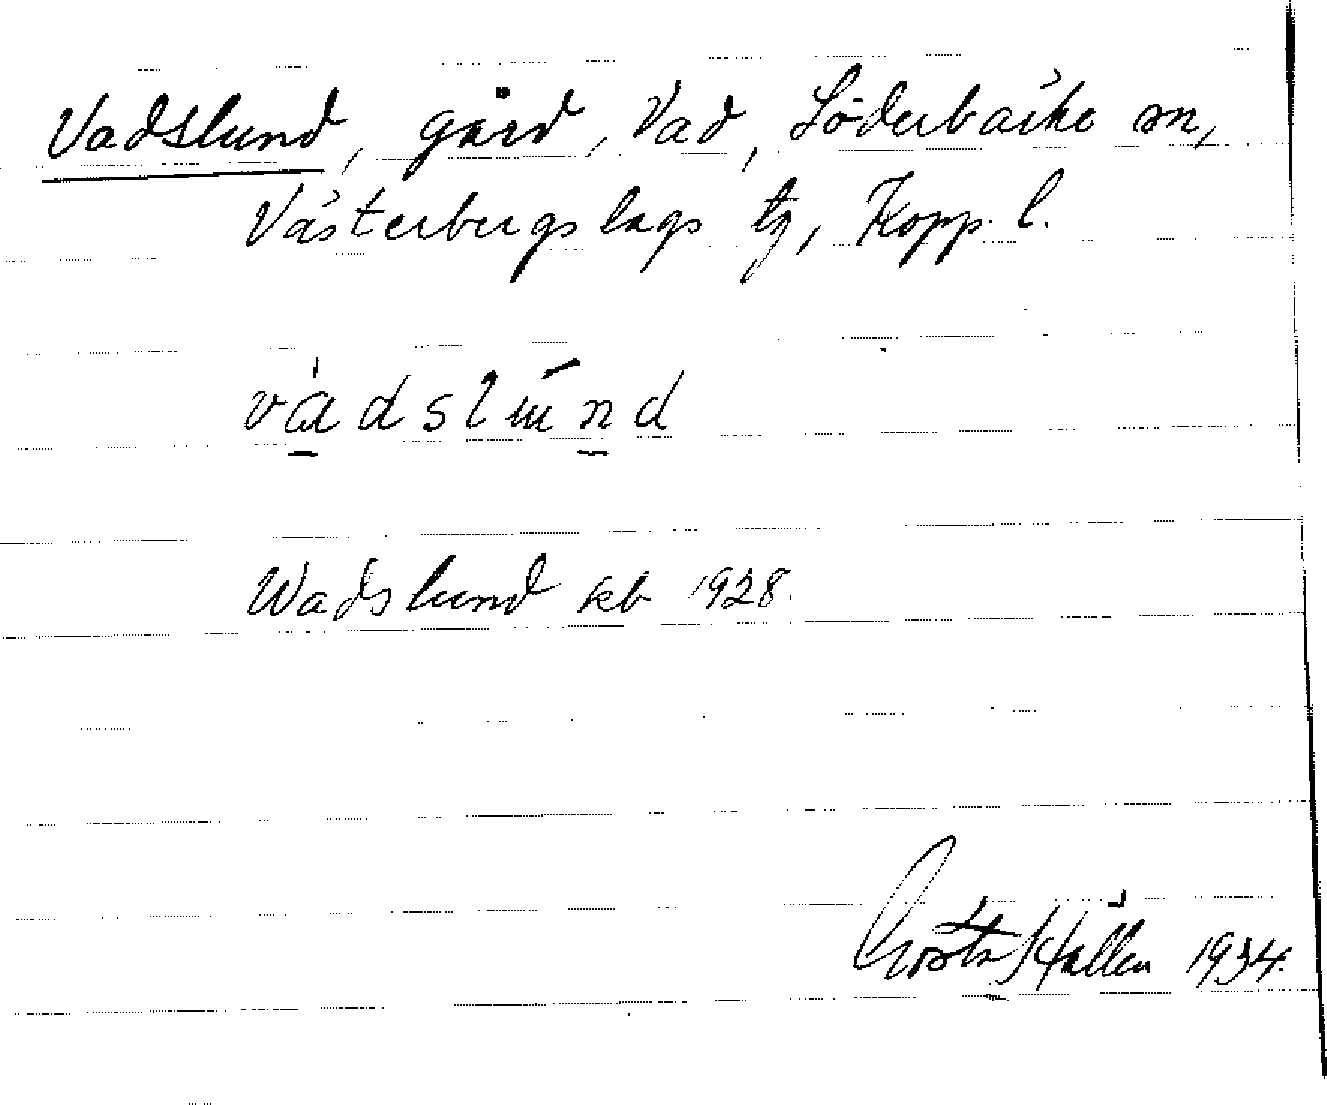 Vadslund, gård, Vad, Söderbärke sn,
Västerbergslags tg, Kopp. l.
vadslund
Wadslund kb 1928.
Gösta Hållen 1934.